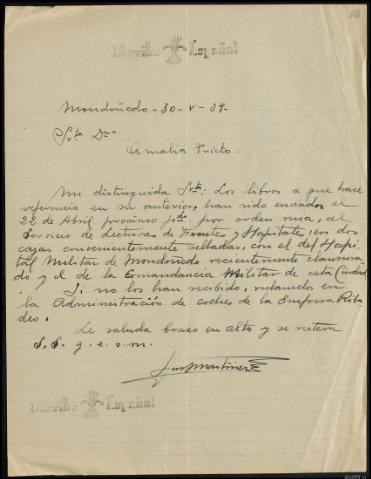 ¡Arriba España!
Mondoñedo - 30 - V - 39.
Srta Dña
Amalia Prieto.
Mi distinguida Srta: Los libros a que hace
referencia en su anterior, han sido enviados el
22 de Abril próximo pdo. por orden mia, al
Servicio de Lecturas de Frentes y Hospitales, en dos
cajas convenientemente selladas, con el del Hospi
tal Militar de Mondoñedo recientemente clausura
do y el de la Comandancia Militar de esta Ciudad.
Si no los han recibido, reclamelos en
la Administración de coches de la Empresa Riba
deo.
Le saluda brazo en alto y se reitera
S. S. q. e. s. m.
Martinez
¡Arriba España!